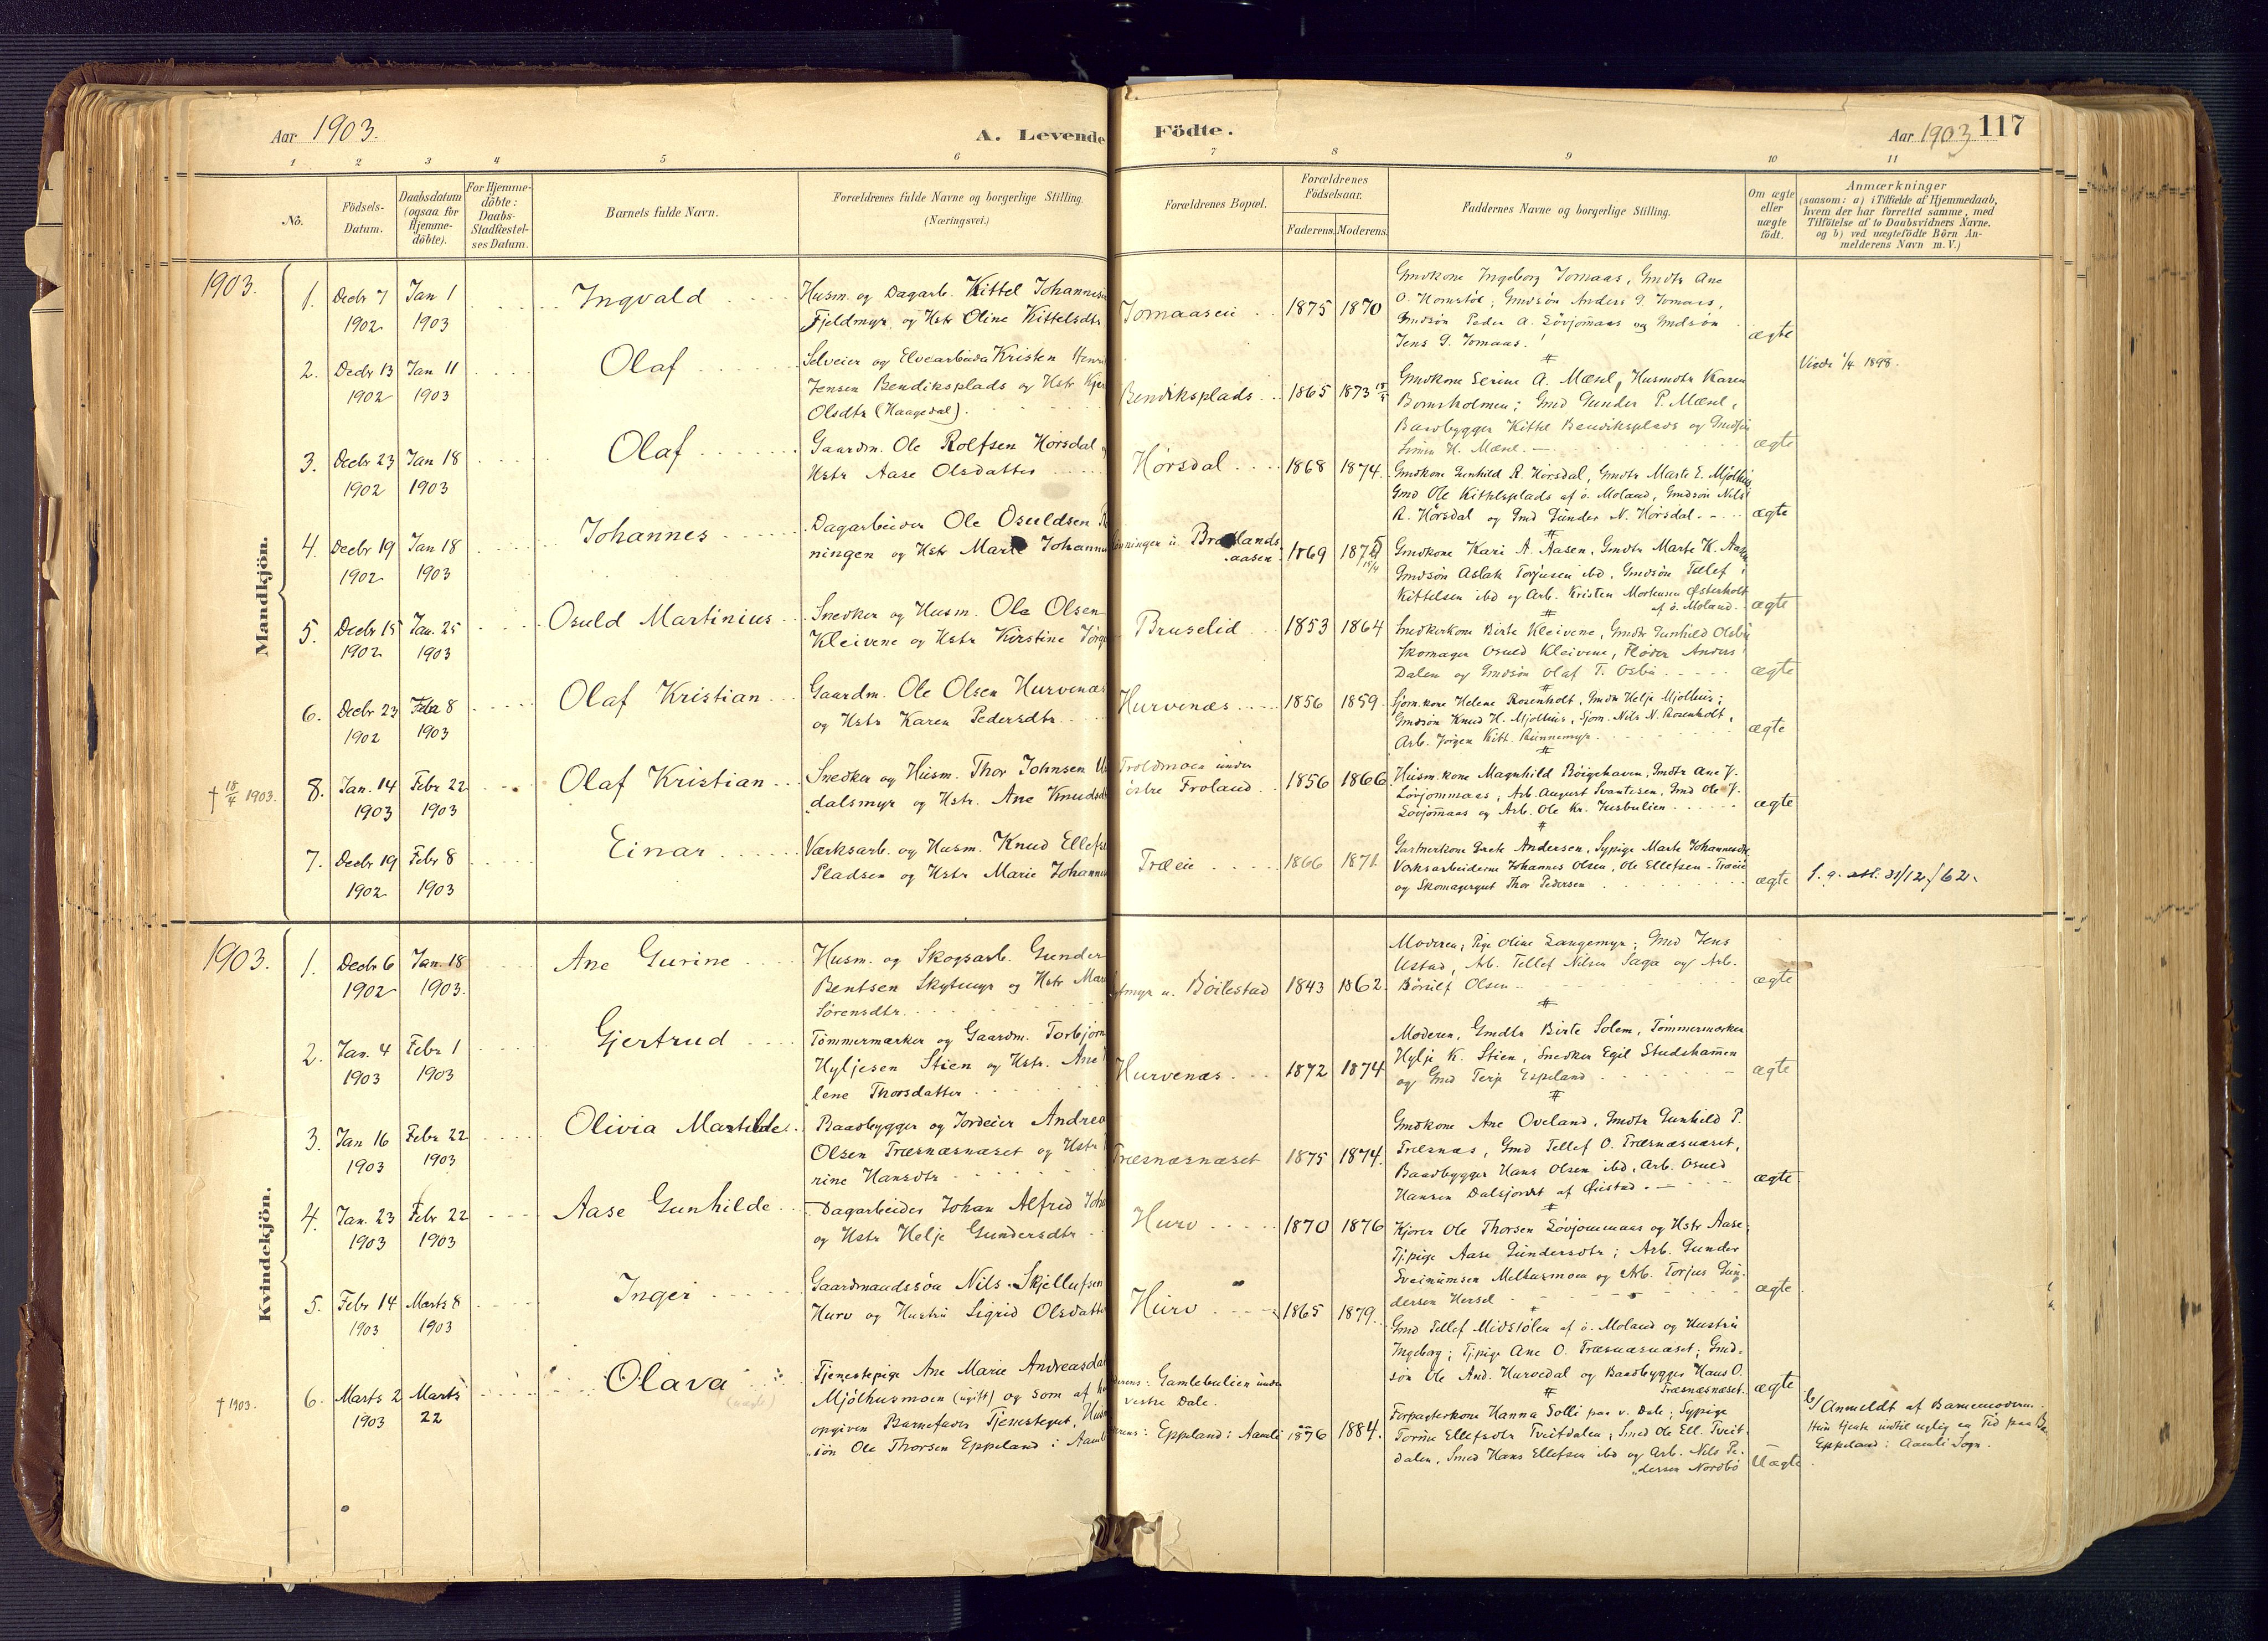 Aar 1903.
A. Levende
Födte.
Aar 1903 117
1 2 3 4 5 6 7 8 9 10 11
No.
Födsels-
Datum.
Daabsdatum
(ogsaa for
Hjemme-
döbte).
For Hjemme-
döbte:
Daabs-
Stadfæstel-
ses Datum.
Barnets fulde Navn.
Forældrenes fulde Navne og borgerlige Stilling.
(Næringsvei.)
Forældrenes Bopæl.
Forældrenes
Födselsaar.
Faderens. Moderens.
Faddernes Navne og borgerlige Stilling.
Om ægte
eller
uægte
födt.
Anmærkninger
(saasom: a) i Tilfælde af Hjemmedaab,
hvem der har forrettet samme, med
Tilföielse af to Daabsvidners Navne.
og b) ved uægtefödte Börn An-
melderens Navn m. V.)
Mandkjön.
1903.
1. Decbr 7 1902
Jan 1 1903
Ingvald
Husm. og Dagarb. Kittel
Fjeldmyr og Hstr Oline Kittelsdtr
Jomaaseie
1875 1870
Gmdkone Ingeborg Jomaas, Gmdtr Ane
O. Homstöl; Gmdsön Anders G. Jomaas,
Gmdsön Peder A. Lövjomaas og Gmdsön
Jens G. Jomaas.
ægte
2. Decbr 13 1902
Jan 11 1903
Olaf
Selveier og Elvearbeider Kristen
Jensen Bendiksplads og Hstr
Olsdtr (Haagedal).
Bendiksplads
1865 1873
Gmdkone Serine A. Mæsel, Husmdtr Karen
Bornsholmen; Gmd Gunder P. Mæsel,
Baadbygger Kittel Bendiksplads og Gmdsön
H. Mæsel.
ægte
Viede 1/4 1898.
3. Decbr 23 1902
Jan 18 1903
Olaf
Gaardm. Ole Rolfsen Hörsdal
Hstr Aase Olsdatter
Hörsdal
1868 1874.
Gmdkone Gunhild R. Hörsdal, Gmdtr Marte E. Mjölhus,
Gmd Ole Kittelsplads af ö. Moland, Gmdsön Nils
R. Hörsdal og Gmd Gunder N. Hörsdal.
ægte
4. Decbr 19 1902
Jan 18 1903
Johannes
Dagarbeider Ole Osuldsen
ningen og Hstr Marte
aasen
1869
Gmdkone Kari A. Aasen, Gmdtr Marte K. Aasen
Gmdsön Aslak Torjusen ibd, Gmdsön Tellef
Kittelsen ibd og Arb. Kristen Mortensen Österholt
af ö. Moland.
ægte
5. Decbr 15 1902
Jan. 25 1903
Osuld Martinius
Snedker og Husm. Ole Olsen
Kleivene og Hstr Kirstine
Bruselid
1853 1864
Snedkerkone Birte Kleivene, Gmdtr Gunhild Osbu
Skomager Osuld Kleivene, Flöder Anders
Dalen og Gmdsön Olaf T. Osbu
ægte
6. Decbr 23 1902
Febr 8 1903
Olaf Kristian
Gaardm. Ole Olsen Hurvenæs
og Hstr Karen Pedersdtr.
Hurvenæs
1856 1859
Sjöm.kone Helene Rosenholt, Gmdtr Helje Mjölhus;
Gmdsön Knud H. Mjölhus, Sjöm. Nils N. Rosenholt,
Arb. Jörgen Kitt.
ægte
† 18/4 1903.
8. Jan. 14 1903
Febr 22 1903
Olaf Kristian
Snedker og Husm. Thor Johnsen
dalsmyr og Hstr. Ane
Troldmoen under
östre Froland
1856 1866
Husm.kone Magnhild Böigehaven, Gmdtr Ane J.
Lövjommaas; Arb. August Svantesen, Gmd Ole J.
Lövjomaas og Arb. Ole Kr. Jusbulien
ægte
7. Decbr 19 1902
Febr 8 1903
Einar
Værksarb. og Husm. Knud
Pladsen og Hstr Marie
Træeie
1866 1871
Gartnerkone Grete Andersen, Sypige Marte
Værksarbeiderne Johannes Olsen, Ole Ellefsen Træeie
og Skomagergut Thor Pedersen
ægte
31/12/62.
Kvindekjön.
1903.
1. Decbr 6 1902
Jan. 18 1903.
Ane Gurine
Husm. og Skogsarb. Gunder
Bentsen Skytemyr og Hstr
Sörensdtr.
myr u. Böilestad
1843 1862
Moderen; Pige Oline Langemyr; Gmd Jens
Ustad, Arb. Tellef Nilsen Saga og Arb.
Börulf Olsen
ægte
2. Jan. 4 1903
Febr 1 1903
Gjertrud
Tömmermærker og Gaardm. Torbjörn
Hyljesen Stien og Hstr. Ane
lene Thorsdatter
Hurvenæs
1872 1874
Moderen, Gmdtr Birte Solem, Tömmermærker
Hylje K. Stien, Snedker Egil Studshamen
og Gmd Terje Espeland
ægte
3. Jan 16 1903
Febr 22 1903
Olivia Mathilde
Baadbygger og Jordeier
Olsen Træsnæsnæset og Hstr
rine Hansdtr
Træsnæsnæset
1875 1874.
Gmdkone Ane Oveland, Gmdtr Gunhild P.
Træsnæs, Gmd Tellef O. Træsnæsnæset,
Baadbygger Hans Olsen ibd, Arb. Osuld
Hansen Dalsjordet af Öiestad.
ægte
4. Jan. 23 1903
Febr 22 1903
Aase Gunhilde
Dagarbeider Johan Alfred
og Hstr Helje Gundersdtr
Hurv
1870 1876
Kjörer Ole Thorsen Lövjommaas og Hstr Aase;
Tj.pige Aase Gundersdtr; Arb. Gunder
Sveinumsen Melhusmoen og Arb. Torjus Gun-
dersen Hersel
ægte
5. Febr 14 1903
Marts 8 1903
Inger
Gaardmandssön Nils Skjellufsen
Hurv og Hustru Sigrid
Hurv
1865 1879
Gmd Tellef Midstölen af ö. Moland og Hustru
Ingeborg; Tj.pige Ane O. Træsnæsnæset; Gmd-
sön Ole And. Hurvedal og Baadbygger Hans O.
Træsnæsnæset.
ægte
† 1903.
6. Marts 2 1903
Marts 22
Olava
(uægte)
Tjenestepige Ane Marie
Mjölhusmoen (ugift) og som af
opgiven Barnefader Tjenestegut,
sön Ole Thorsen Eppeland i
: Gamlebulien under
vestre Dale.
: Eppeland i Aamli
1876 1884.
Forpagterkone Hanna Solli paa v. Dale; Sypige
Torine Ellefsdtr Tveitdalen; Smed Ole Ell. Tveit-
dalen, Smed Hans Ellefsen ibd og Arb. Nils Pe-
dersen Nordbö
Uægte
b/ Anmeldt af Barnemoderen.
Hun tjente indtil nylig en Tid paa
Eppeland i Aamli Sogn.